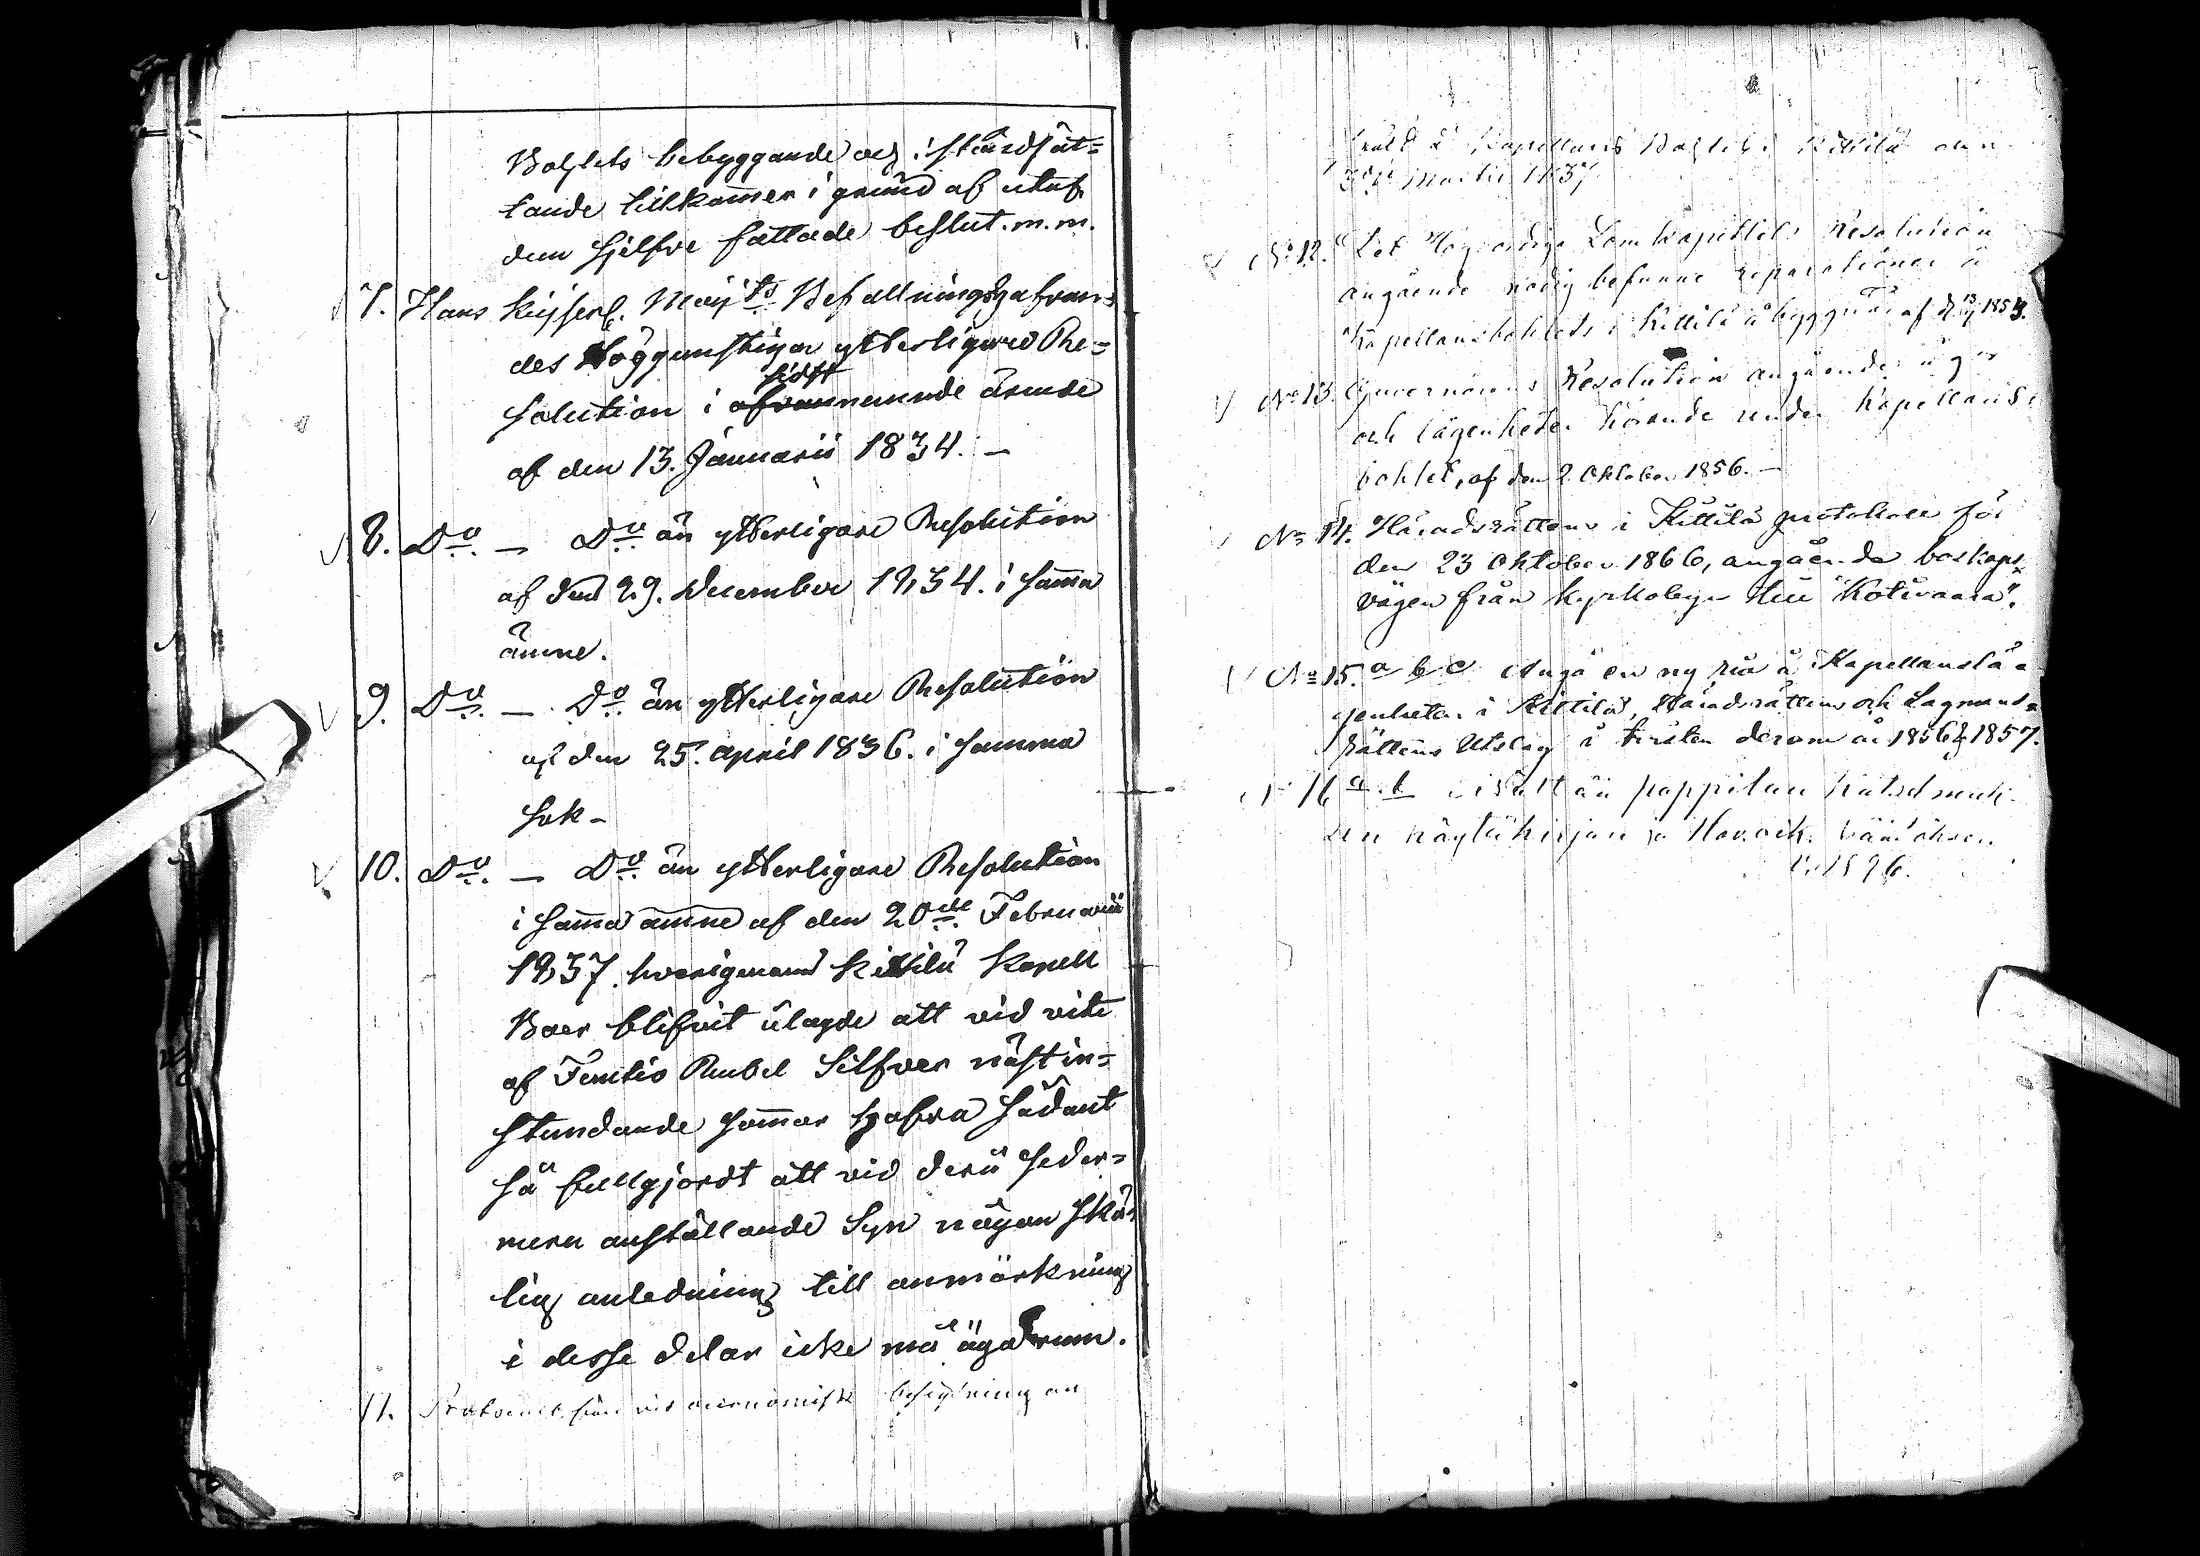 Bohlets bebyggande och i ståndsät=
tande tillkommer i grund af utaf
dem sjelfve fattade beslut. m. m.
7. Hans Kejserl. Maj:ts Befallningshafvan=
des Höggunstiga ytterligare Re=
solution i sidst afvannemnde ärende
af den 13. Januarii 1834. —
8. Do. — Do. än ytterligare Resolution
af den 29. December 1834. i samma
ämne.
9. Do. — Do. än ytterligare Resolution
af den 25. April 1836. i samma
sak —
10. Do. — Do. än ytterligare Resolution
i samma ämne af den 20de Februarii
1837. hvarigenom Kittilä Kapell
Boer blifvit ålagde att vid vite
af Femtio Rubel Silfver nästin=
stundande sommar hafva sådant
så fullgjordt att vid derå seder=
mera anställande Syn någon skä=
lig anledning till anmärkning
i desse delar icke må äga rum.
11. œconomisk besigtning an
å Kapellans Bohlet i Kittilä den
Martii 1837
No 12. Domkapitlets Resolution
angående nödig befunne reparationer å
Kapellansbohlets i Kittilä åbyggnad af d. 13/ 185
No 13. Guvernörens Resolution angående ägor
och lägenheter hörande under Kapellans
bohlet, af den 2 Oktober 1856. —
No 14. Häradsrättens i Kittilä protokoll för
den 23 Oktober 1866, angående boskaps
vägen från Kyrkobyn till "Kotivaara".
No 15. a b c Angå en ny ria å Kapellanslä=
genheten i Kittilä, Häradsrättens och Lagmans=
rättens Utslag i tvisten derom år 1856 & 1857.
No 16 a. b pappilan
näytekirjan ja
v. 1896.